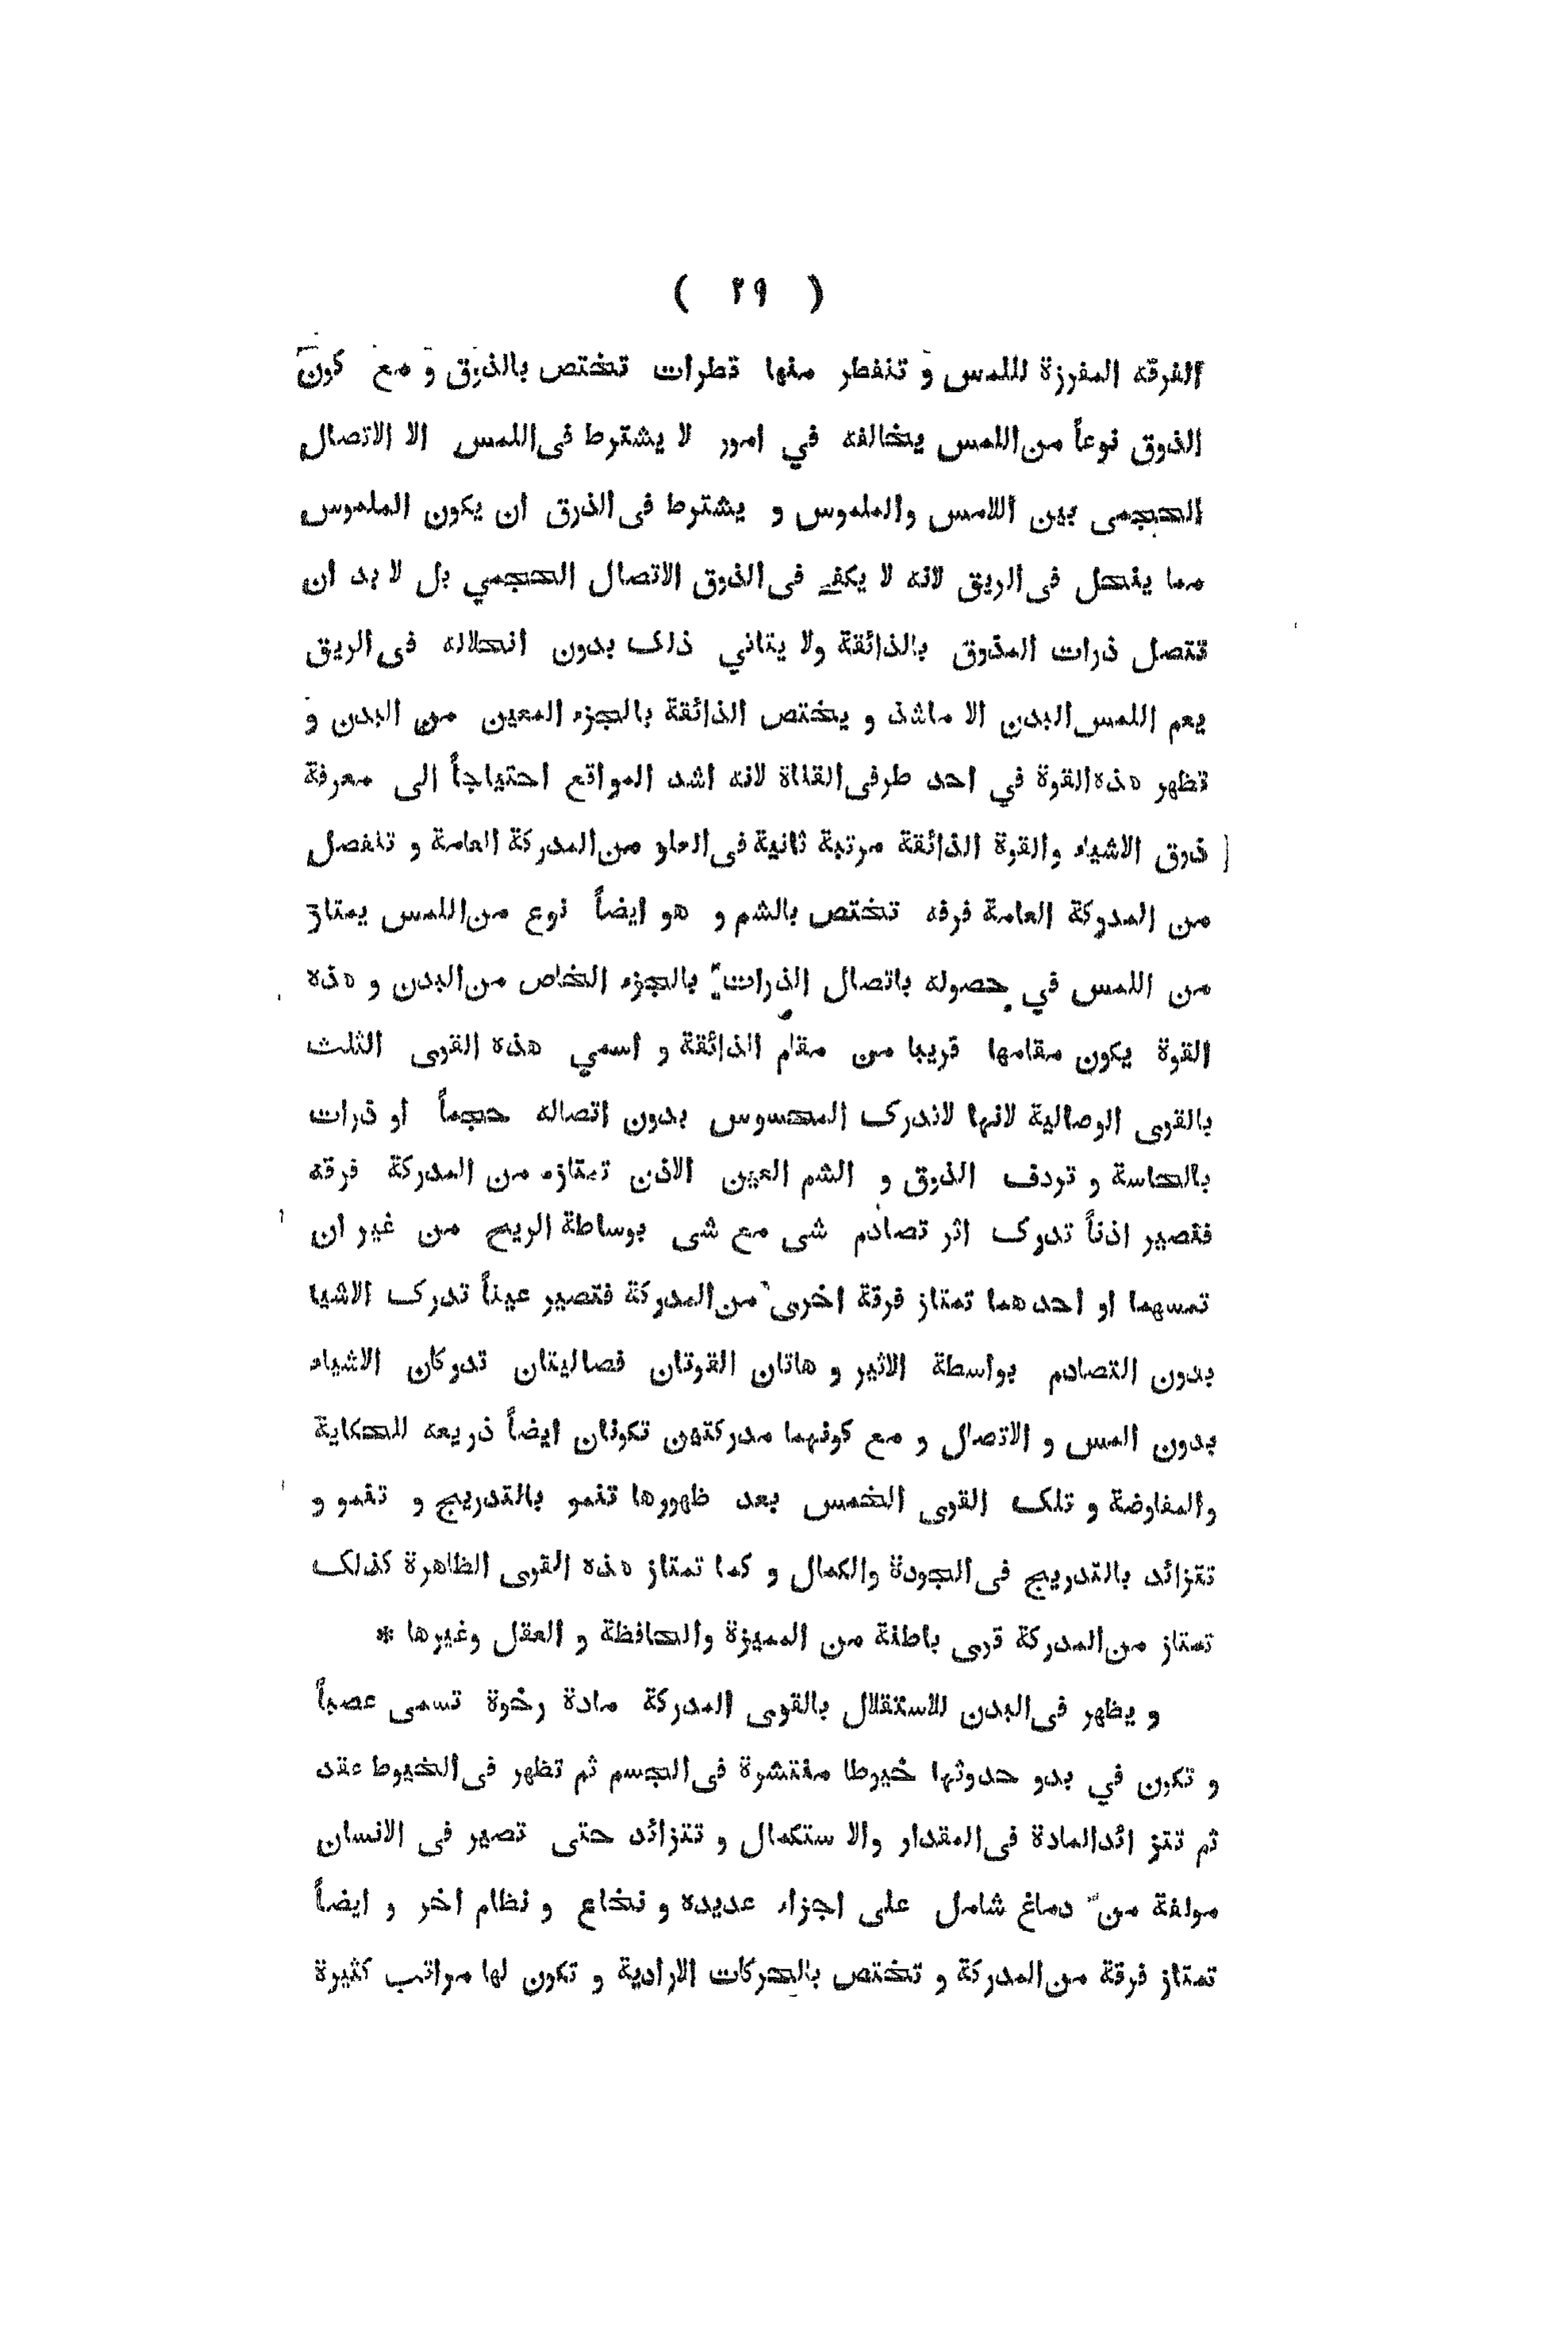 ( ٢٩ )
الفرقه المفرزة لللمس و تنفطر منها قطرات تختص بالذوق و مع كون
الذوق نوعاً من اللمس يخالفه في امور لا يشترط فى اللمس الا الاتصال
الحجمى بين اللامس والملموس و يشترط فى الذرق ان يكون الملموس
مما ينحل فى الريق لانه لا يكفي فى الذوق الاتصال الحجمي بل لا بد ان
تتصل ذرات المذوق بالذائقة ولا يتاني ذلك بدون انحلاله فى الريق
يعم اللمس البدن الا ماشذ و يختص الذائقة بالجزء المعين من البدن و
تظهر هذه القوة في احد طرفى القناة لانه اشد المواقع احتياجاً الى معرفة
ذوق الاشياء والقوة الذائقة مرتبة ثانية فى العلو من المدركة العامة و تنفصل
من المدركة العامة فرقه تختص بالشم و هو ايضاً نوع من اللمس يمتاز
من اللمس في حصوله باتصال الذرات بالجزء الخاص من البدن و هذه
القوة يكون مقامها قريبا من مقام الذائقة و اسمي هذه القوى الثلث
بالقوى الوصالية لانها لاندرك المحسوس بدون اتصاله حجماً او ذرات
بالحاسة و تردف الذوق و الشم العين الاذن تمتازه من المدركة فرقه
فتصير اذناً تدرك اثر تصادم شى مع شى بوساطة الريح من غير ان
تمسهما او احدهما تمتاز فرقة اخرى من المدركة فتصير عيناً تدرك الاشيا
بدون التصادم بواسطة الاثير و هاتان القوتان فصاليتان تدركان الاشياء
بدون المس و الاتصال و مع كونهما مدركتين تكونان ايضاً ذريعه للحكاية
والمفاوضة و تلك القوى الخمس بعد ظهورها تنمو بالتدريج و تنمو و
تتزائد بالتدريج فى الجودة والكمال و كما تمتاز هذه القوى الظاهرة كذلك
تمتاز من المدركة قرى باطنة من المميزة والحافظة و العقل وغيرها *
و يظهر فى البدن للاستقلال بالقوى المدركة مادة رخوة تسمى عصباً
و تكون في بدو حدوثها خيوطا منتشرة فى الجسم ثم تظهر فى الخيوط عقد
ثم تتز ائد المادة فى المقدار والا ستكمال و تتزائد حتى تصير فى الانسان
مولفة من دماغ شامل على اجزاء عديده و نخاع و نظام اخر و ايضاً
تمتاز فرقة من المدركة و تختص بالحركات الارادية و تكون لها مراتب كثيرة